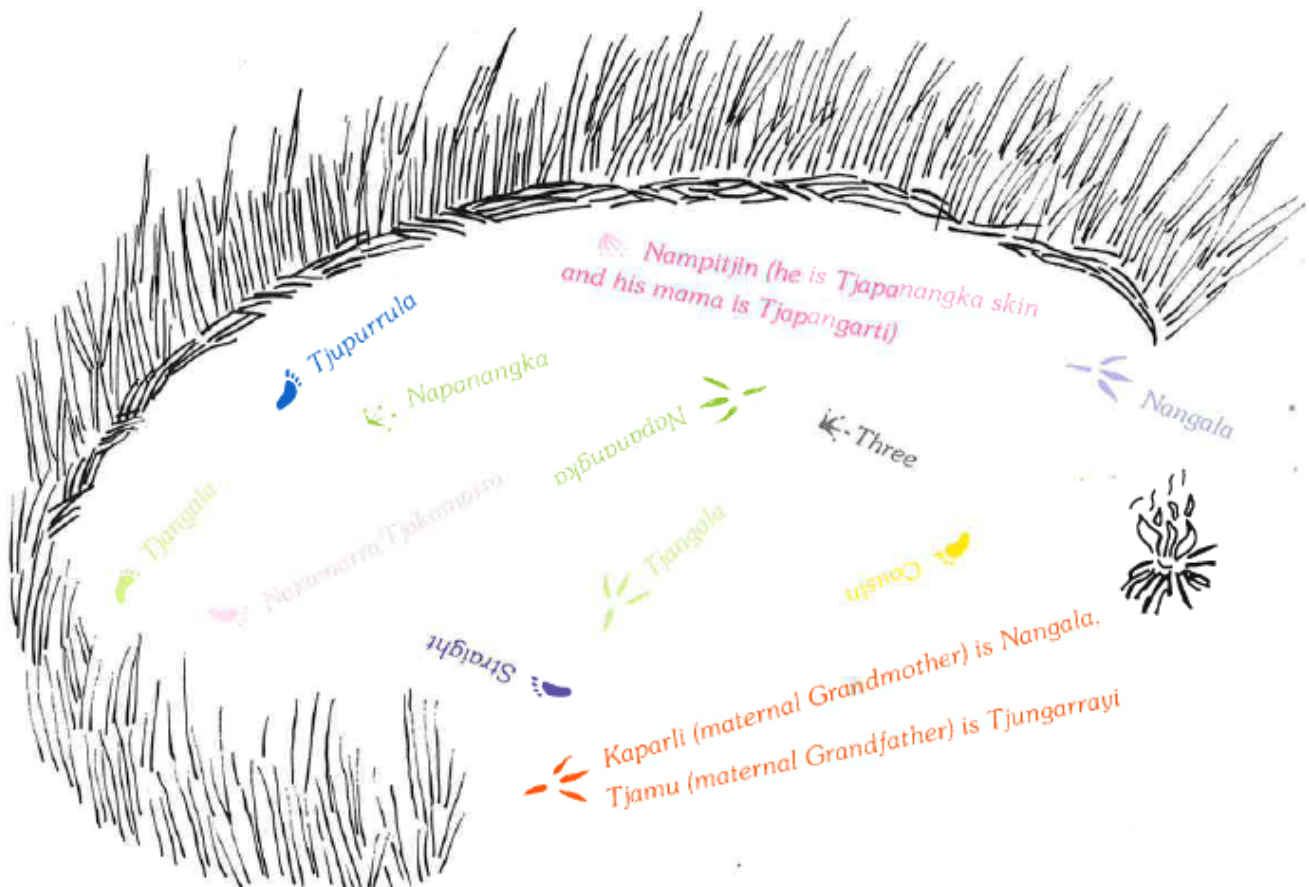 Nampitjin (he is Tjapanangka skin
and his mama is Tjapangarti)
Tjupurrula
Napanangka
Nangala
Napanangka
Three
Tjangala
Nakamarra/Tjakamarra
Tjangala
Cousin
Straight
Kaparli (maternal Grandmother) is Nangala,
Tjamu (maternal Grandfather) is Tjungarrayi